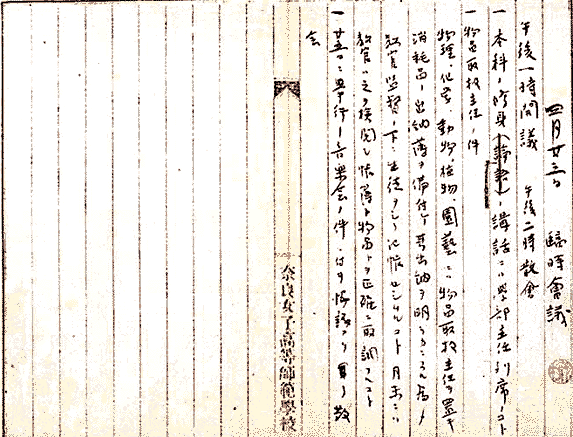 四月廿三日 臨時會議
午後一時開議 午後二時散會
一 本科ノ修身(讀書)ノ講話ニハ學部主任列席ノコト
一 物品取扱主任ノ件
物理、化学、動物、植物、園藝ニハ物品取扱主任ヲ置キ
消耗品ノ出納簿ヲ備付ケ其出納ヲ明ラカニスル為メ
教官監督ノ下ニ生徒ヲシテ記帳セシムルコト 月末ニハ
教官ハ之ヲ検閲シ帳簿ト物品トヲ正確ニ取調フルコト
一 廿五日ニ挙行ノ音楽会ノ件ニ付キ協議スル所アリ散
会
奈良女子高等師範學校